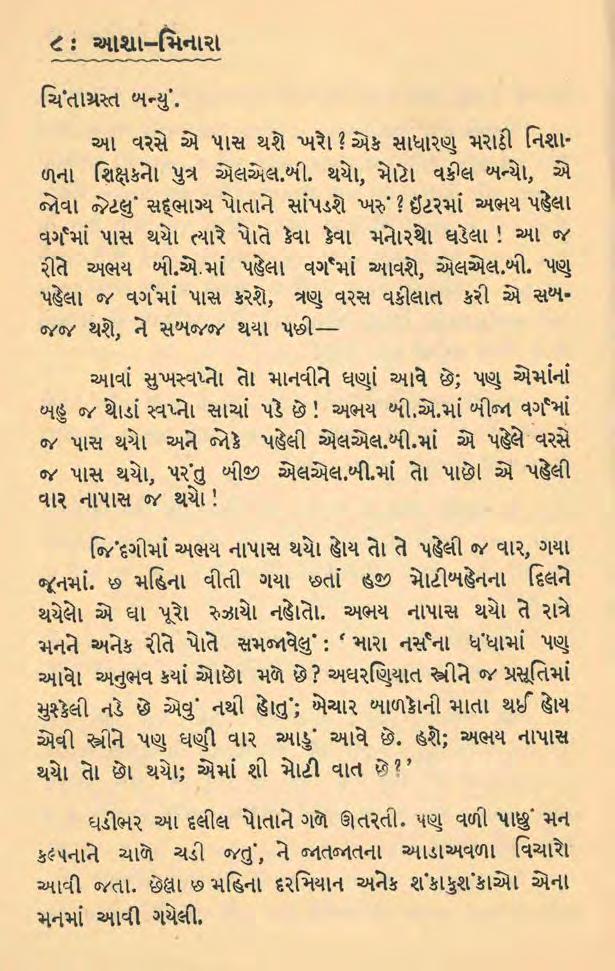 ૮ : આશા–મિનારા
ચિંતાગ્રસ્ત બન્યું.
આ વરસે એ પાસ થશે ખરો? એક સાધારણ મરાઠી નિશા-
ળના શિક્ષકનો પુત્ર એલએલ.બી. થયો, મોટો વકીલ બન્યો, એ
જોવા જેટલું સદ્ભાગ્ય પોતાને સાંપડશે ખરું? ઇંટરમાં અભય પહેલા
વર્ગમાં પાસ થયો ત્યારે પોતે કેવા કેવા મનોરથો ઘડેલા! આ જ
રીતે અભય બી.એ.માં પહેલા વર્ગમાં આવશે, એલએલ.બી. પણ
પહેલા જ વર્ગમાં પાસ કરશે, ત્રણ વરસ વકીલાત કરી એ સબ-
જજ થશે, ને સબજજ થયા પછી—
આવાં સુખસ્વપ્નો તો માનવીને ઘણાં આવે છે; પણ એમાંનાં
બહુ જ થોડાં સ્વપ્નો સાચાં પડે છે! અભય બી.એ.માં બીજા વર્ગમાં
જ પાસ થયો અને જોકે પહેલી એલએલ.બી.માં એ પહેલે વરસે
જ પાસ થયો, પરંતુ બીજી એલએલ.બી.માં તો પાછો એ પહેલી
વાર નાપાસ જ થયો!
જિંદગીમાં અભય નાપાસ થયો હોય તો તે પહેલી જ વાર, ગયા
જૂનમાં. છ મહિના વીતી ગયા છતાં હજી મોટીબહેનના દિલને
થયેલો એ ઘા પૂરો રુઝાયો નહોતો. અભય નાપાસ થયો તે રાત્રે
મનને અનેક રીતે પોતે સમજાવેલું : ‘ મારા નર્સના ધંધામાં પણ
આવો અનુભવ કયાં ઓછો મળે છે? અઘરણિયાત સ્ત્રીને જ પ્રસૂતિમાં
મુશ્કેલી નડે છે એવું નથી હોતું; બેચાર બાળકોની માતા થઈ હોય
એવી સ્ત્રીને પણ ઘણી વાર આડું આવે છે. હશે; અભય નાપાસ
થયો તો છો થયો; એમાં શી મોટી વાત છે?’
ઘડીભર આ દલીલ પોતાને ગળે ઊતરતી. પણ વળી પાછું મન
કલ્પનાને ચાળે ચડી જતું, ને જાતજાતના આડાઅવળા વિચારો
આવી જતા. છેલ્લા છ મહિના દરમિયાન અનેક શંકાકુશંકાઓ એના
મનમાં આવી ગયેલી.